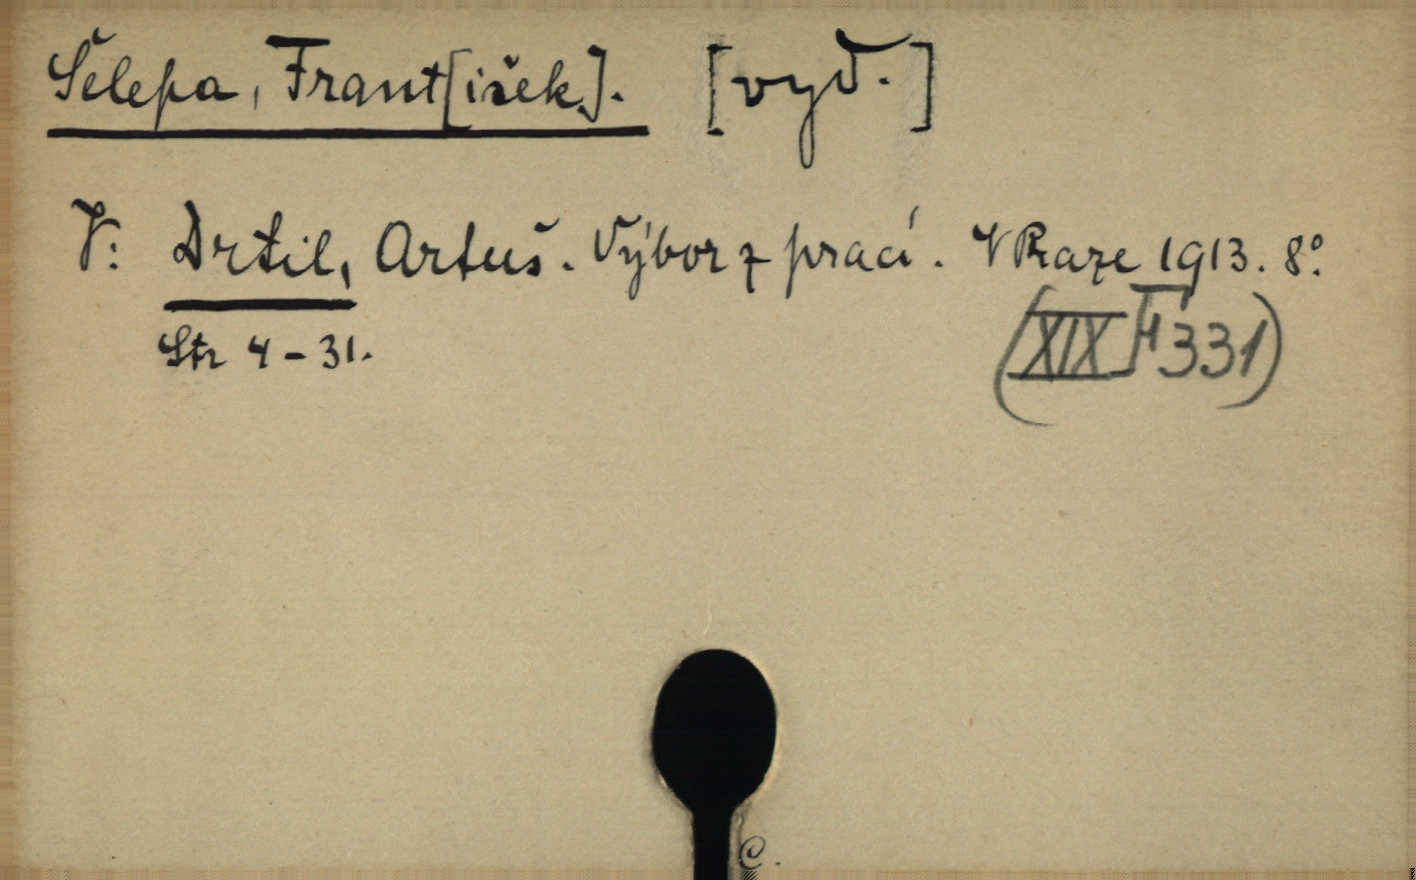 Šelepa, Frant[išek]. [vyd.]
V: Drtil, Artuš. Výbor z prací. V Praze 1913. 8°.
Str 4-31.
(XIX H 331)
C.